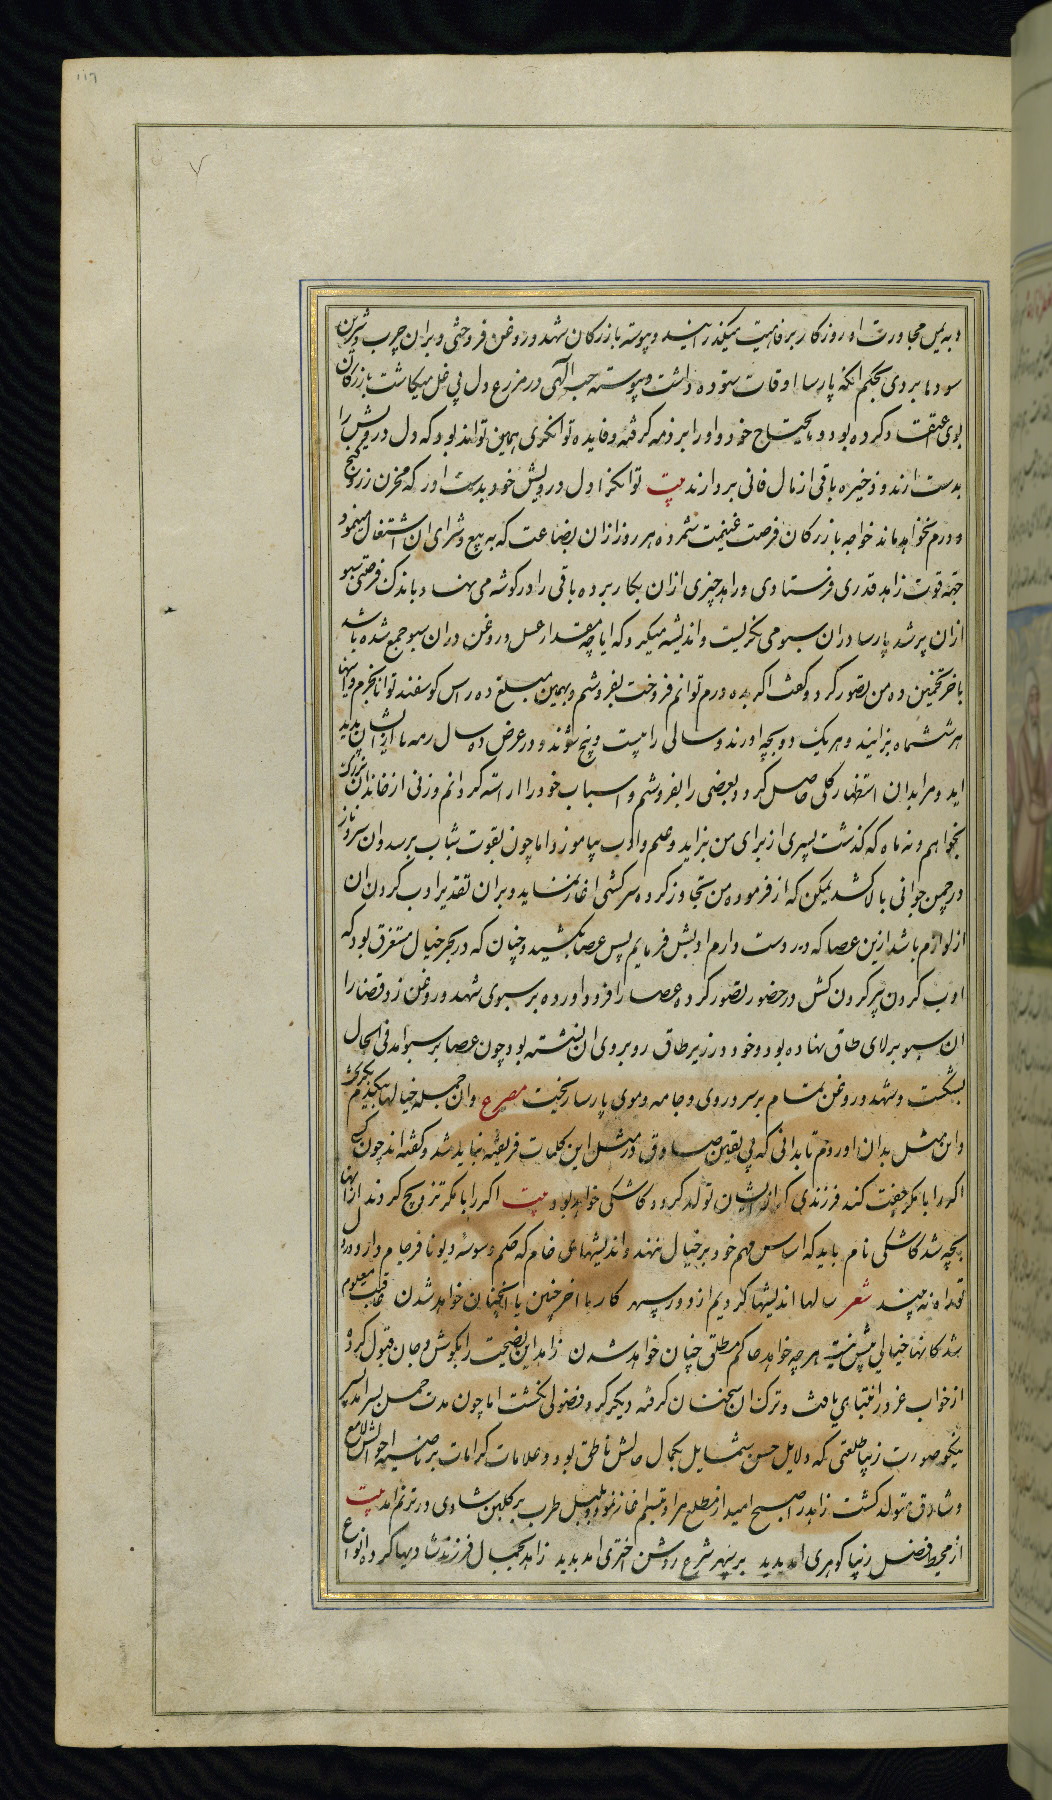 ۱۱۶
۷
و به یمن مجاورت او روزگار برفاهیت میگذرانید و پیوسته بازرکان شهد و روغن فروختی و بران چرب و شیرین
سودها بردی بحکم انکه پارسا اوقات ستوده داشت و پیوسته حب الهی در مزرع دل بی غل میکاشت بازرکان
بوی اعتقاد کرده بود و مایحتاج خود و او را بر ذمه گرفته و فایده توانکری همین تواند بود که دل درویش را
بدست ارند و ذخیره باقی از مال فانی بردارند بیت توانکرا دل درویش خود بدست اور که مخزن زر و کنج
و درم نخواهد ماند خواجه بازرکان فرصت غنیمت شمرده هر روز ازان بضاعت که به بیع و شرای ان اشتغال مینمود
جهة قوت زاهد قدری فرستادی و زاهد چیزی ازان بکار برده باقی را در کوشه می نهاد و باندک فرصتی سبو
ازان پر شد پارسا دران سبو می نکریست و اندیشه میکرد که ایا چه مقدار عسل و روغن دران سبو جمع شده باشد
باخر تخمین ده من تصور کرد و کفت اکر بده درم توانم فروخت بفروشم و بهمین مبلغ ده راس کوسفند توانا بخرم و اینها
هر ششماه بزایند و هریک دو بچه اورند و سالی را بیست و پنج شوند و در عرض ده سال رمه ها ازایشان پدید
اید و مرا بدان استظهار کلی حاصل کردد بعضی را بفروشم و اسباب خود را اراسته کردانم و زنی از خاندان بزرک
بخواهم و نه ماه که کذشت پسری از برای من بزاید و علم و ادب بیاموزد اما چون بقوت شباب برسد و ان سرو ناز
در چمن جوانی بالا کشد یمکن که از فرموده من تجاوز کرده سرکشی اغاز نماید و بران تقدیر ادب کردن ان
از لوازم باشد ازین عصا که در دست دارم ادبش فرمایم پس عصا بکشید و چنان که در بحر خیال مستغرق بود که
ادب کردن پسر کردن کش در حضور تصور کرده عصا را فرود اورده بر سبوی شهد و روغن زد قضا را
ان سبو بر بالای طاق نهاده بود و خود در زیر طاق روبروی ان نشسته بود چون عصا بر سبو امد فی الحال
بشکست و شهد و روغن تمام بر سر و روی و جامه و موی پارسا ریخت مصرع وان جمله خیالها بیکدم بکریخت
و این مثل بدان اوردم تا بدانی که بی یقین صادق در مثل این کلمات فریفته نباید شد و کفته اند چون کسی
اکر را با مکر جفت کند فرزندی کز ایشان تولد کردد کاشکی خواهد بود بیت اکر را با مکر تزویج کردند از اینها
بچه شد کاشکی نام باید که اساس مهم خود بر خیال ننهد و اندیشهای خام که حکم وسوسه دیو نافرجام دارد و در دل
شعر سالها اندیشها کردیم از دور سپهر کار ما اخر چنین یا انچنان خواهد شدن عاقبت معلوم
شد کانها خیالی بیش نیست هر چه خواهد حاکم مطلق چنان خواهد شدن زاهد این نصیحت را بکوش و جان قبول کرد و
از خواب غرور انتباهی یافت و ترک ان سخنان کرفته دیکر کرد فضولی نکشت اما چون مدت حمل بسر امد پسر
نیکو صورت زیبا طلعتی که دلایل حسن شمایل بکمال حالش ناطق بود و علامات کرامات بر ناصیه احوالش لامع
و شارق متولد کشت زاهد را صبح امید از مطلع مراد تبسم اغاز نمود و بلبل طرب بر کلبن شادی در ترنم امد بیت
از محیط فضل زیبا کوهری امد پدید بر سپهر شرع روشن اختری امد پدید زاهد بجمال فرزند شادیها کرده و انواع